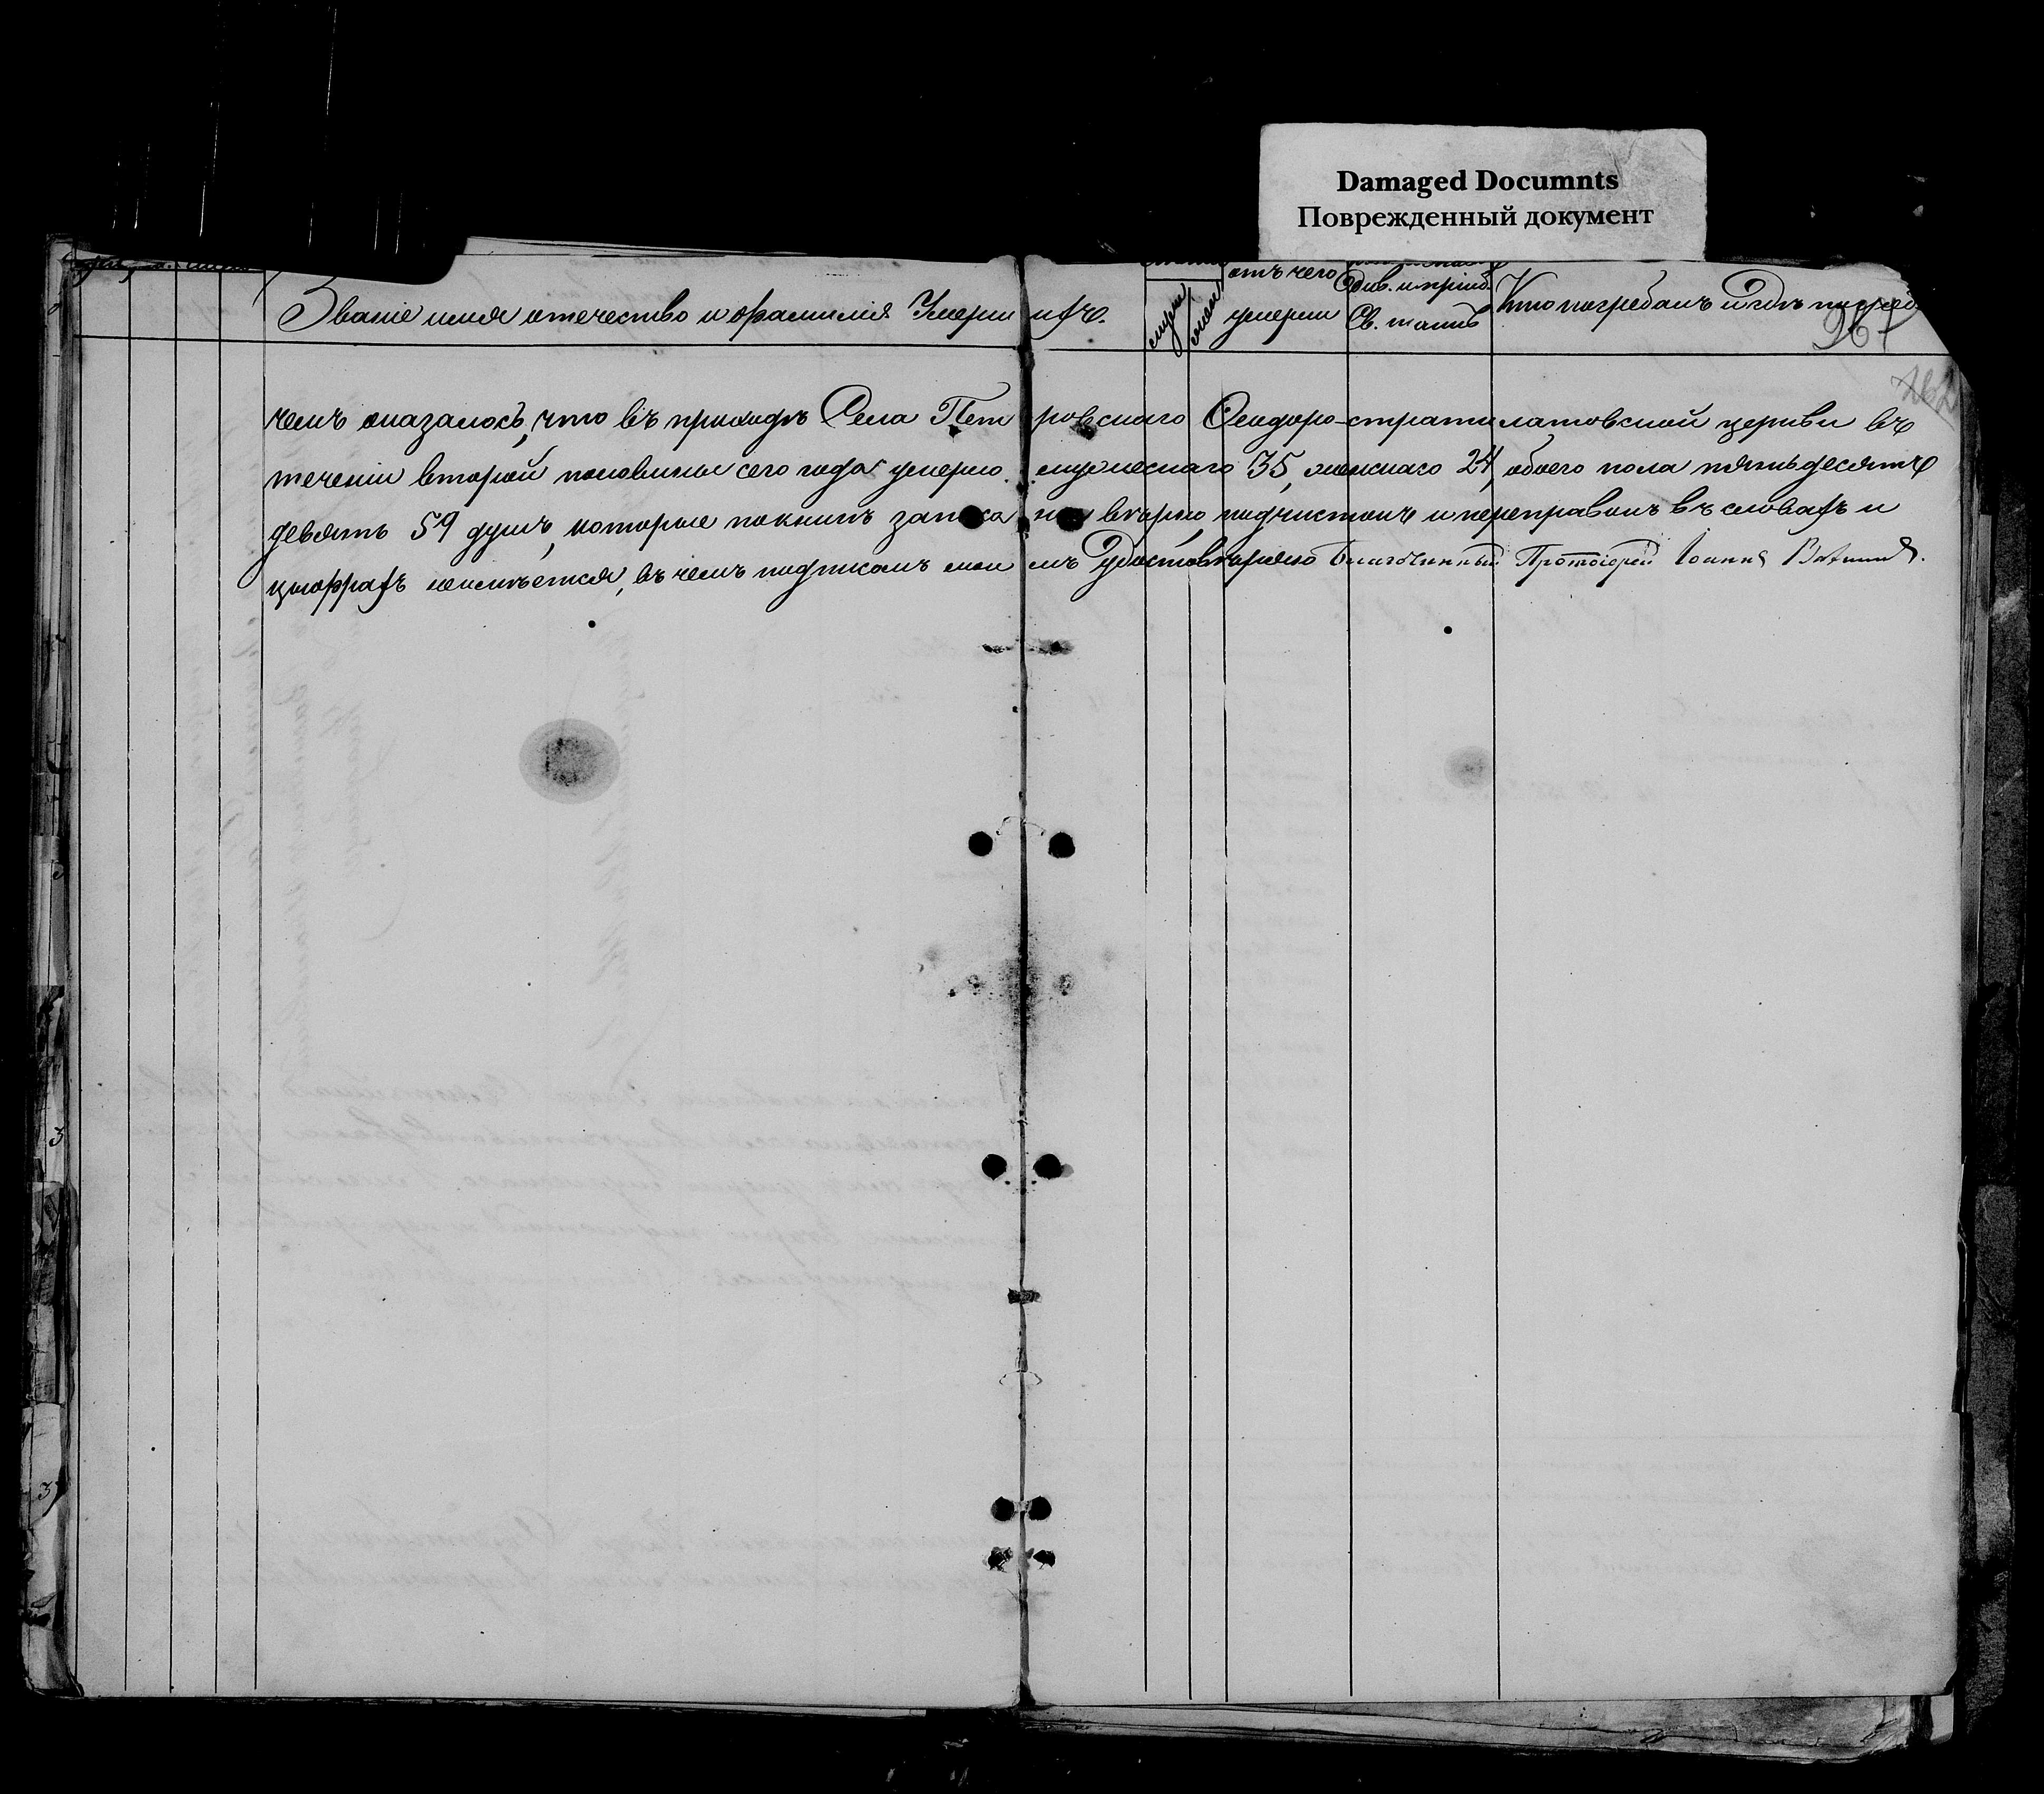 Damaged Documnts
Поврежденный документ
Званіе имя отечество и фамилія Умершихъ.
мужеск
женск
отъ чего умерли
Св. таинъ
Кто погребалъ и гдѣ погреб
267
262
чемъ оказалось, что въ приходѣ Села Петровскаго Ѳеодоро-стратилатовской церкви въ
теченіи второй половины сего года умерло мужескаго 35, женскаго 24, обоего пола пятьдесятъ
девять 59 душъ, которые по книгѣ записаны вѣрно, подчистокъ и переправокъ въ словахъ и
цыфрахъ неимѣется, въ чемъ подписомъ моимъ Удостовѣряю Благочинный Протоіерей Іоаннъ